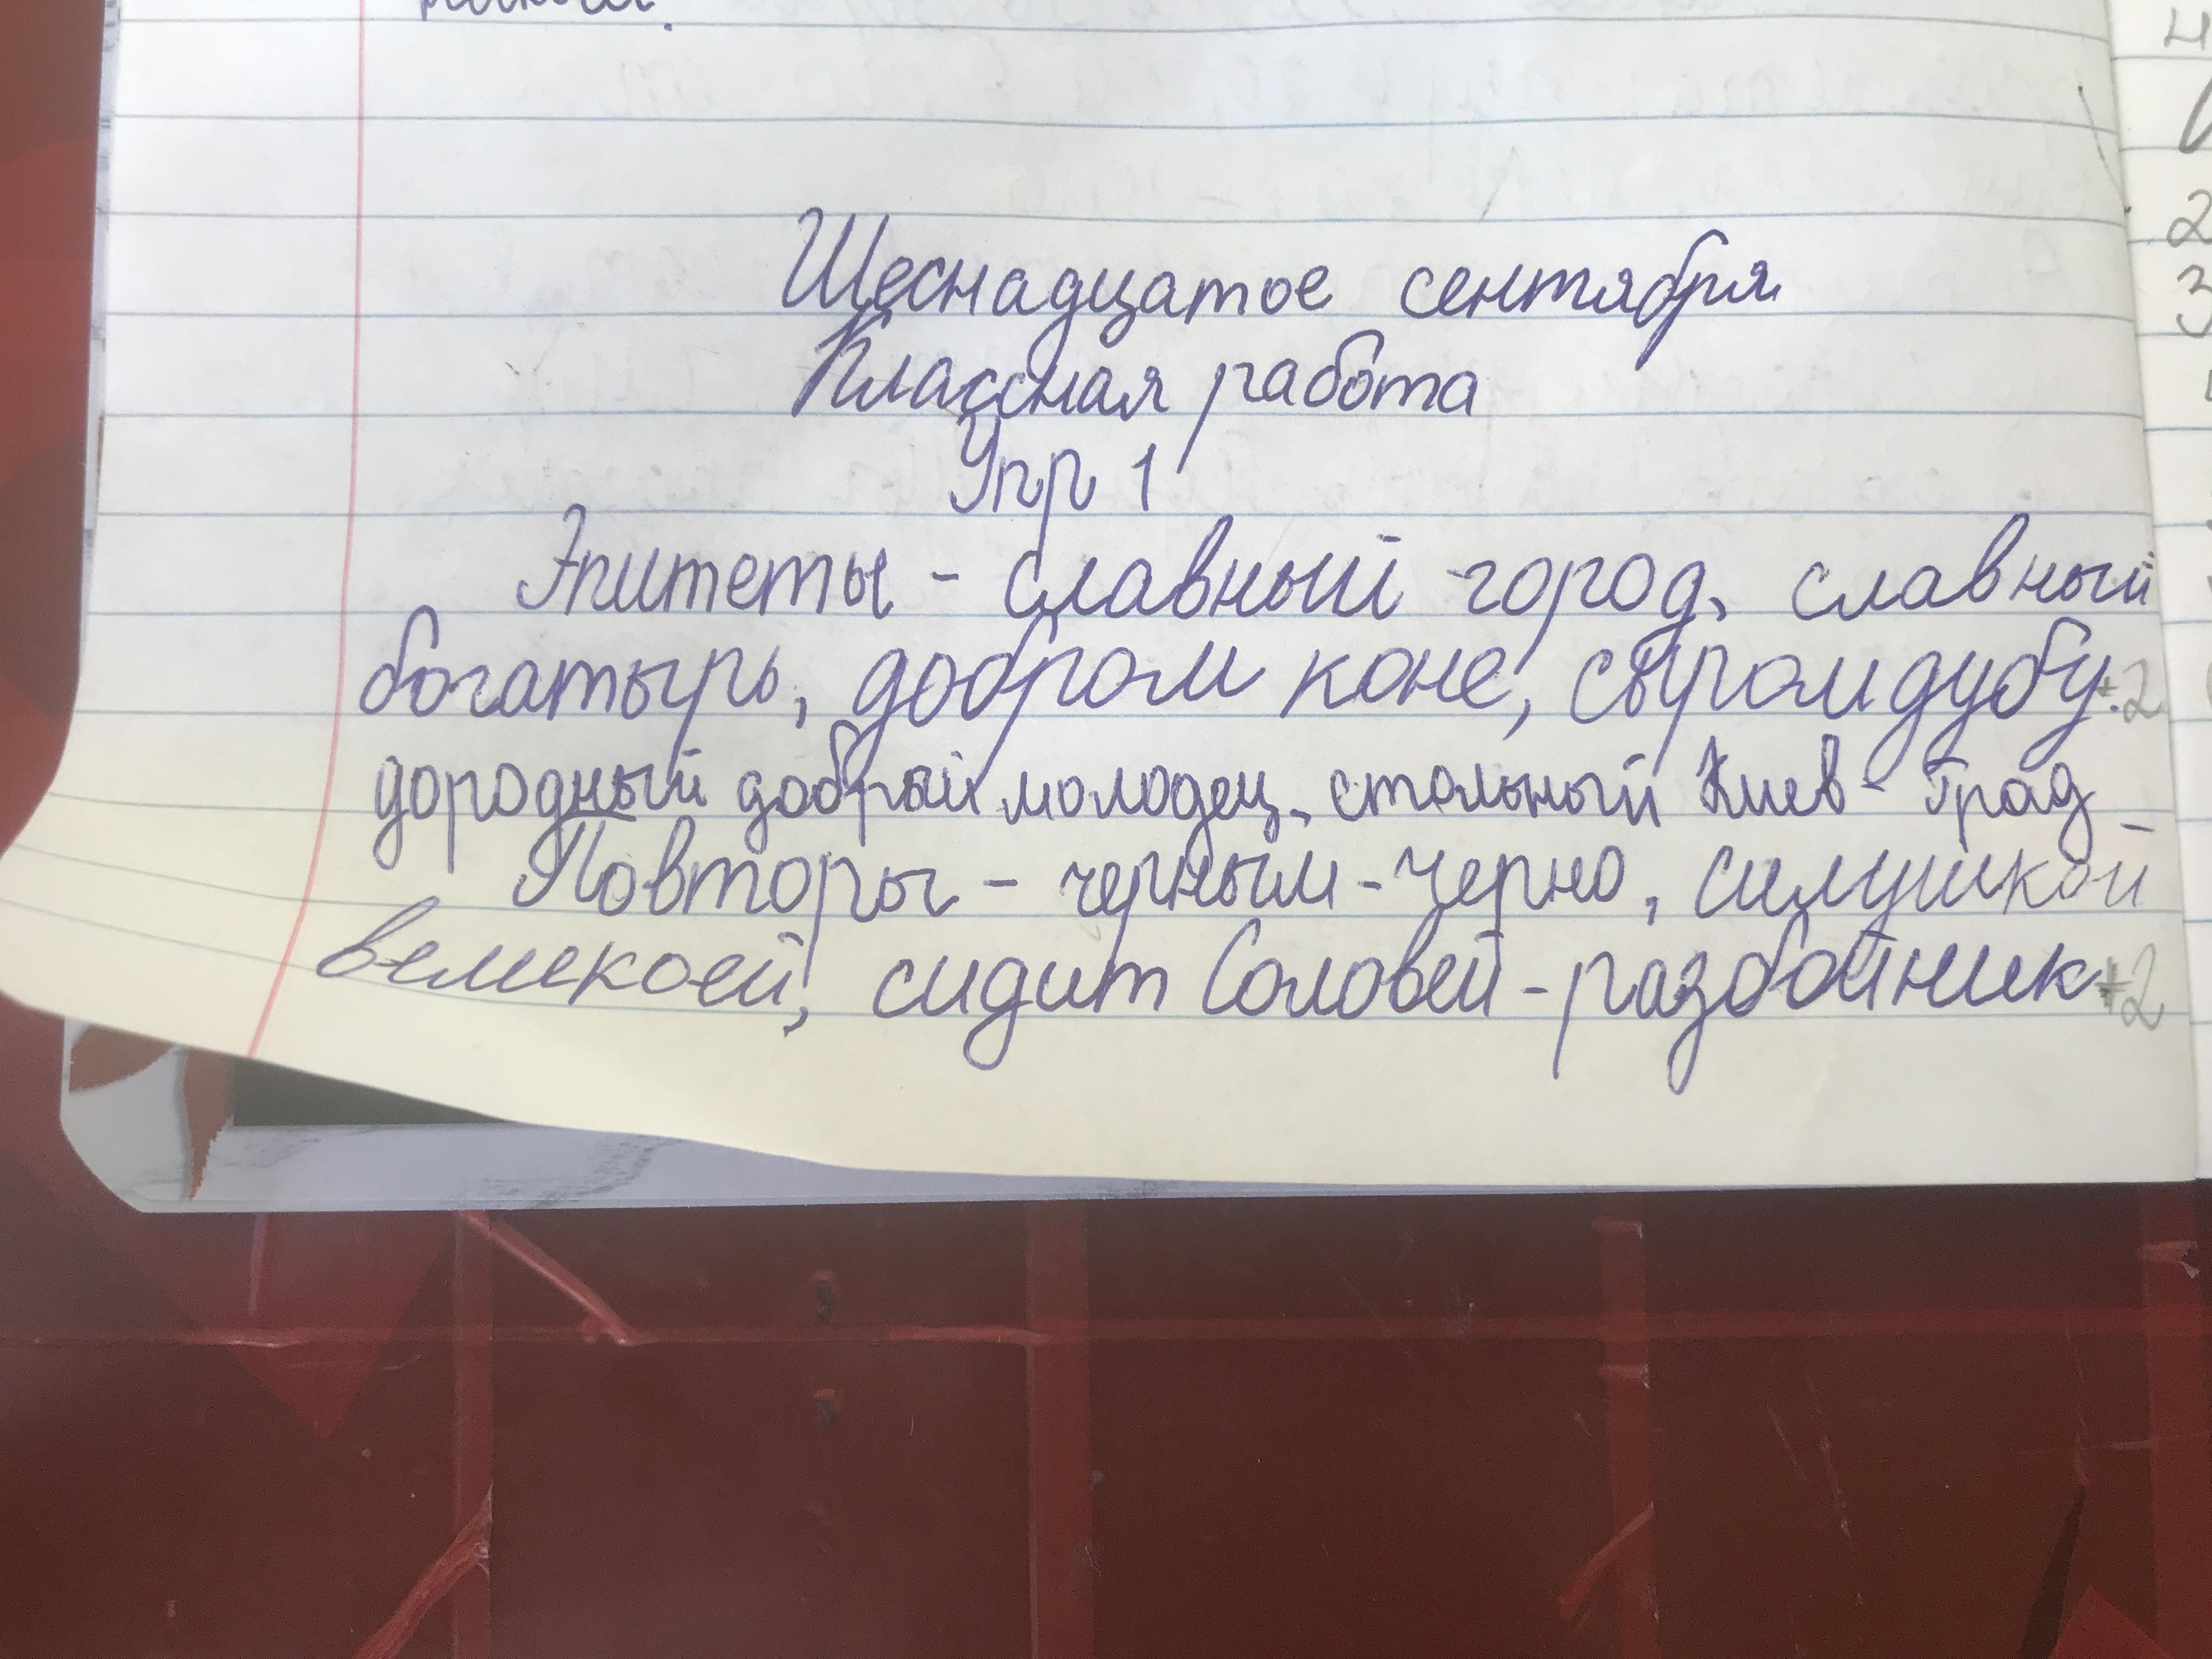 Шеснадцатое сентября
Классная работа
Упр 1
Эпитеты - славный город, славный
богатырь, добром коне, сыром дубу. +2
дородный добрый молодец, стольный Киев-Град
Повторы - черным-черно, силушкой
великоей, сидит Соловей-разбойник +2
4
2
3